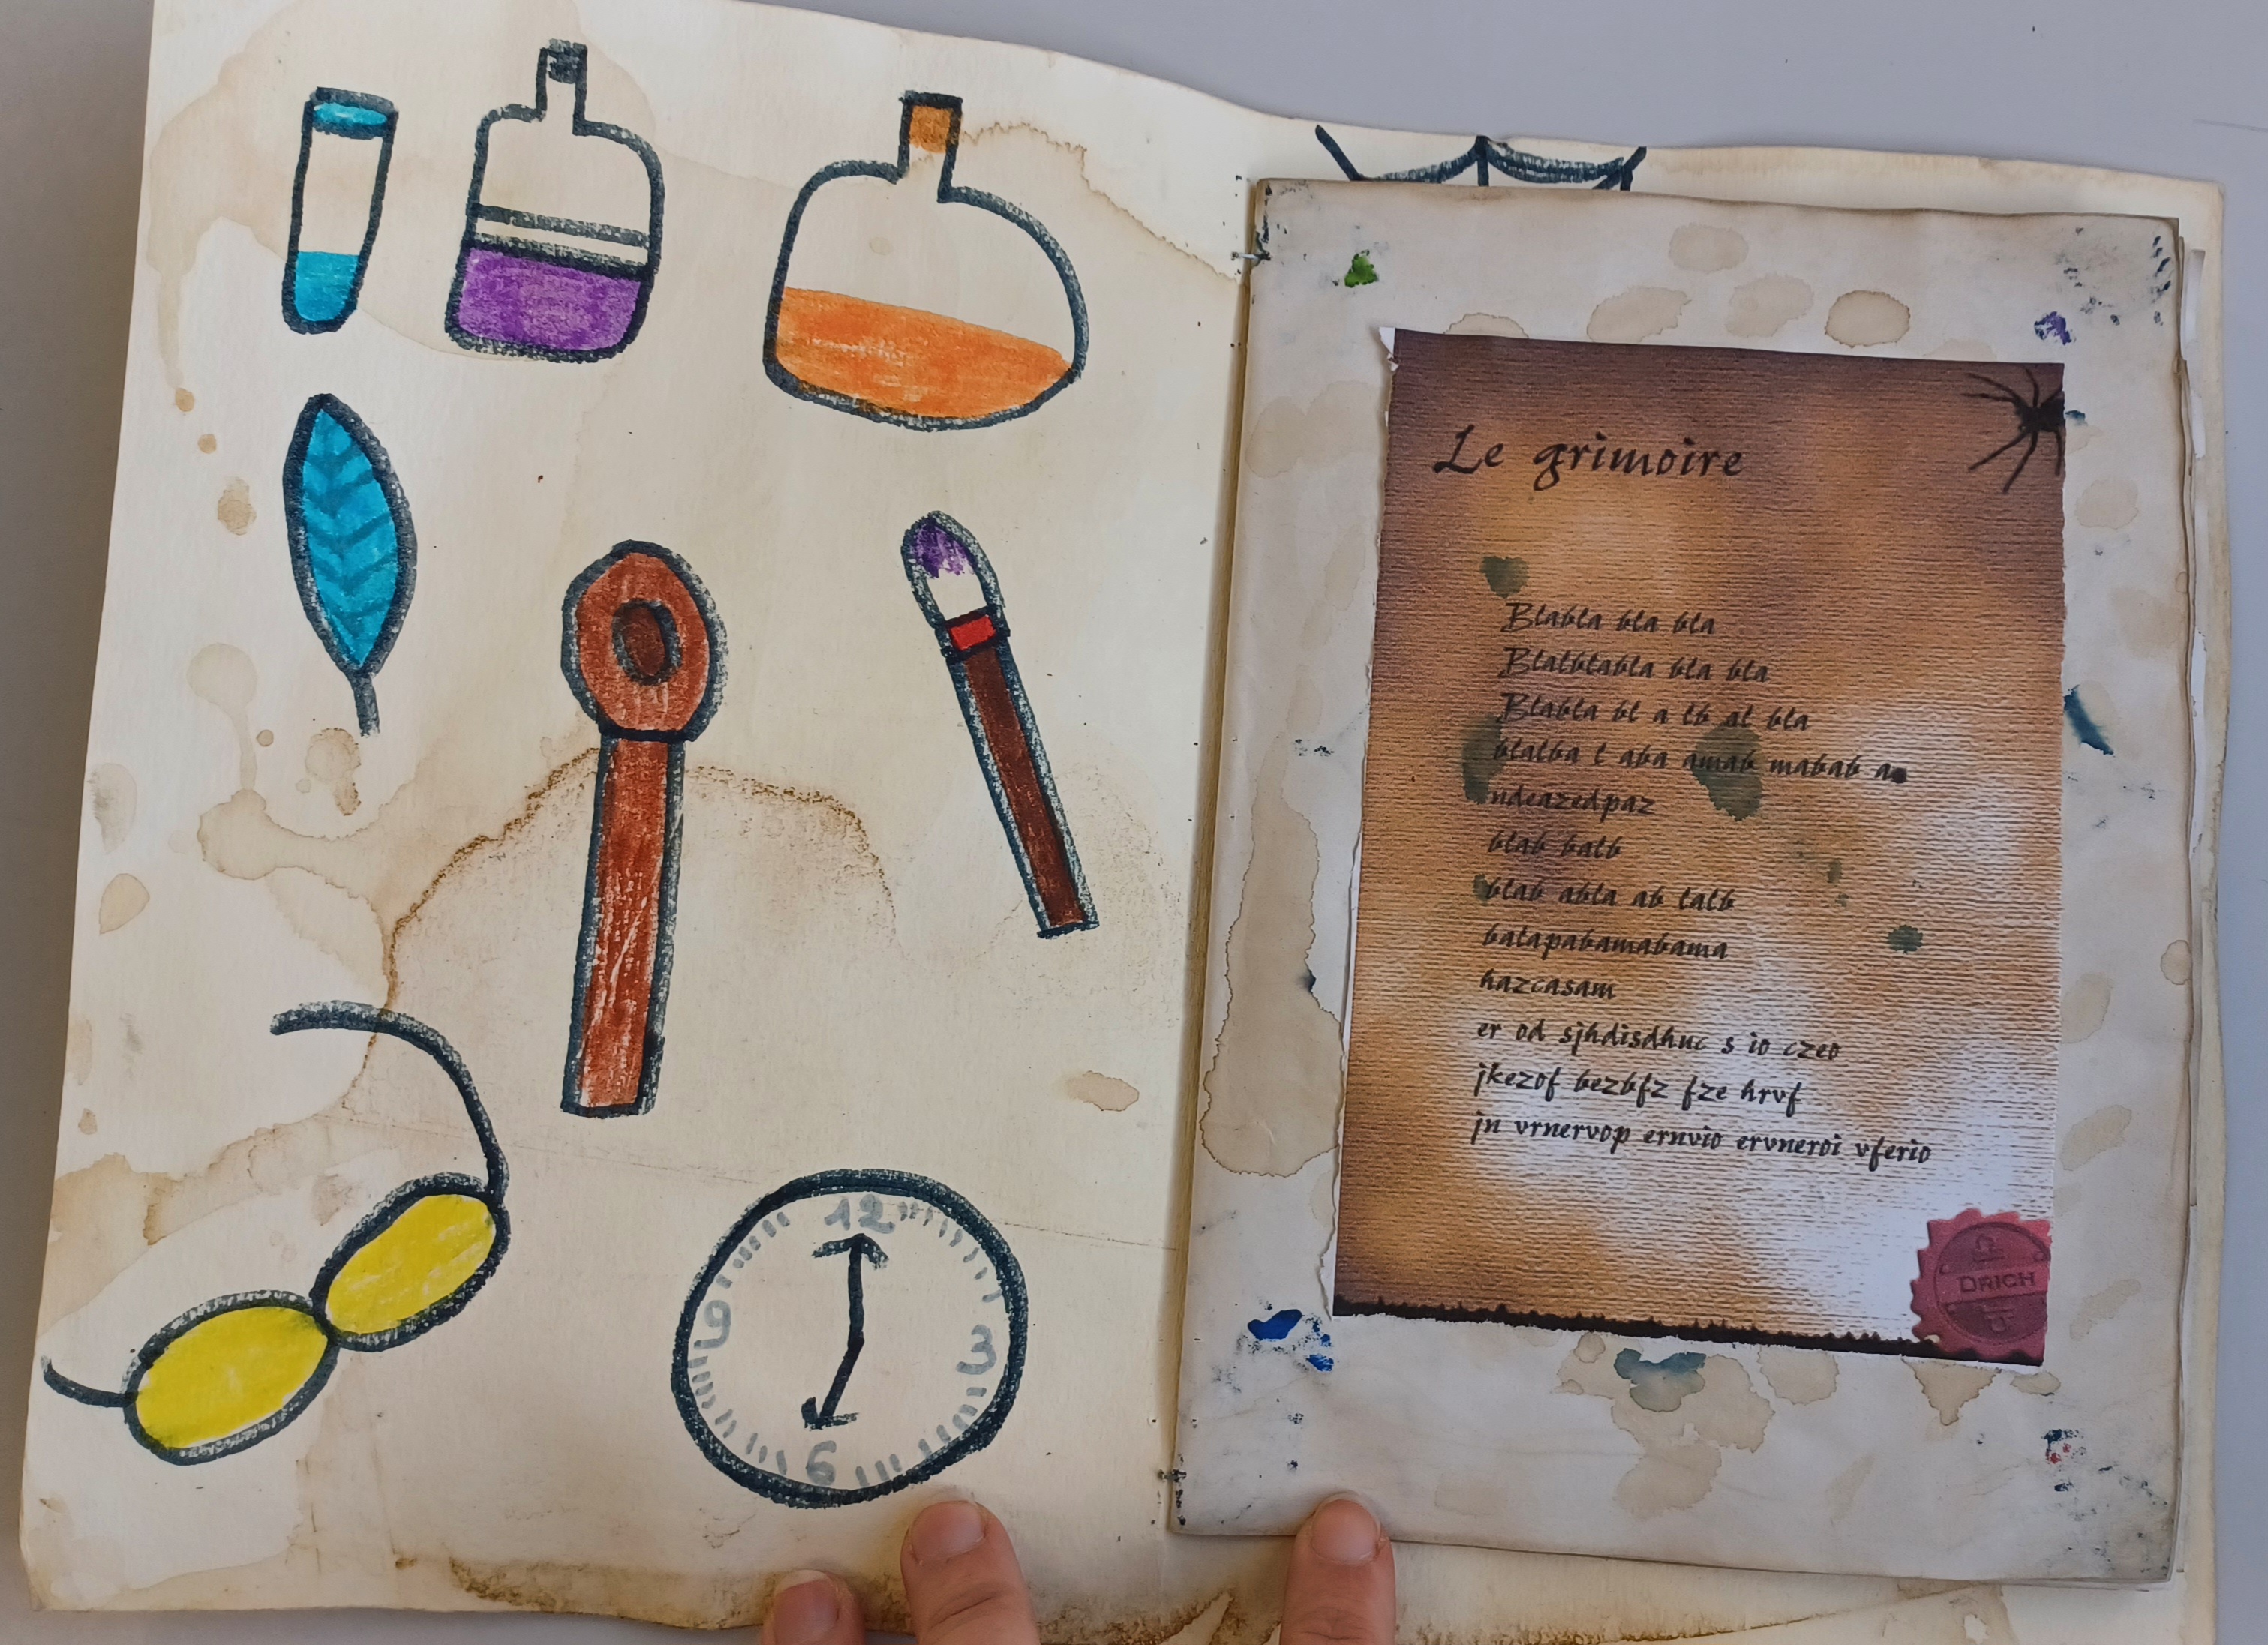 12
9
3
6
Le grimoire
Blabla bla bla
Blalblabla bla bla
Blabla bl a lb al bla
blalba l aba amab mabab a
ndeazedpaz
blab balb
blab abla ab lalb
balapabamabama
hazcasam
er od sjhdisdhuc s io czeo
jkezof bezbfz fze hrvf
jn vrnervop ernvio ervneroi vferio
DRICH